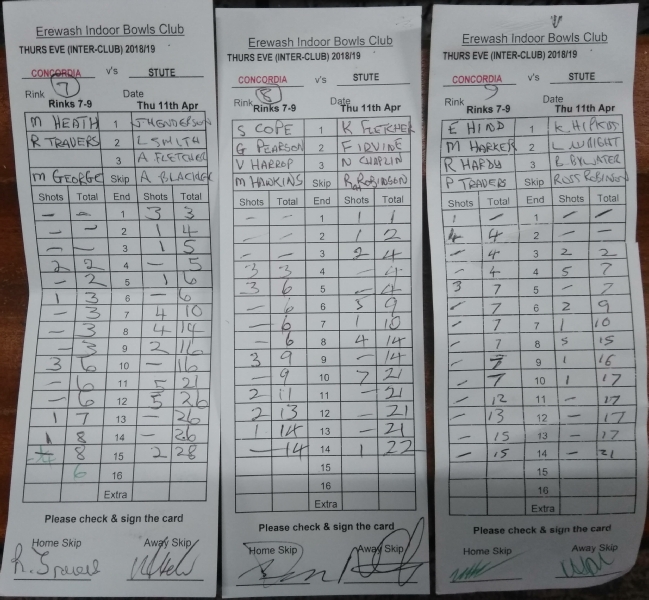 Erewash Indoor Bowls Club
THURS EVE (INTER-CLUB) 2018/19
CONCORDIA v's STUTE
Rink 7 Date
Rinks 7-9 Thu 11th Apr
M HEATH 1 J HENDERSON
R TRAVERS 2 L SMITH
3 A FLETCHER
M GEORGE Skip A BLACKER
Shots Total End Shots Total
- - 1 3 3
- - 2 1 4
- - 3 1 5
2 2 4 - 5
- 2 5 1 6
1 3 6 - 6
- 3 7 4 10
- 3 8 4 14
- 3 9 2 16
3 6 10 - 16
- 6 11 5 21
- 6 12 5 26
1 7 13 - 26
1 8 14 - 26
8 15 2 28
6 16
Extra
Please check & sign the card
Home Skip Away Skip
Erewash Indoor Bowls Club
THURS EVE (INTER-CLUB) 2018/19
CONCORDIA v's STUTE
Rink 8 Date
Rinks 7-9 Thu 11th Apr
S COPE 1 K FLETCHER
G PEARSON 2 F IRVINE
V HARROP 3 N CHAPLIN
M HAWKINS Skip R ROBINSON
Shots Total End Shots Total
- - 1 1 1
- - 2 1 2
- - 3 2 4
3 3 4 - 4
3 6 5 - 4
- 6 6 5 9
- 6 7 1 10
- 6 8 4 14
3 9 9 - 14
- 9 10 7 21
2 11 11 - 21
2 13 12 - 21
1 14 13 - 21
- 14 14 1 22
15
16
Extra
Please check & sign the card
Home Skip Away Skip
Erewash Indoor Bowls Club
THURS EVE (INTER-CLUB) 2018/19
CONCORDIA v's STUTE
Rink 9 Date
Rinks 7-9 Thu 11th Apr
E HIND 1 K.
M HARKER 2 L WRIGHT
R HARDY 3 BYWATER
P TRAVERS Skip ROSS ROBINSON
Shots Total End Shots Total
1 - 1 - -
4 4 2 - -
- 4 3 2 2
- 4 4 5 7
3 7 5 - 7
- 7 6 2 9
- 7 7 1 10
- 7 8 5 15
- 7 9 1 16
- 7 10 1 17
- 12 11 - 17
- 13 12 - 17
- 15 13 - 17
- 15 14 - 21
15
16
Extra
Please check & sign the card
Home Skip Away Skip